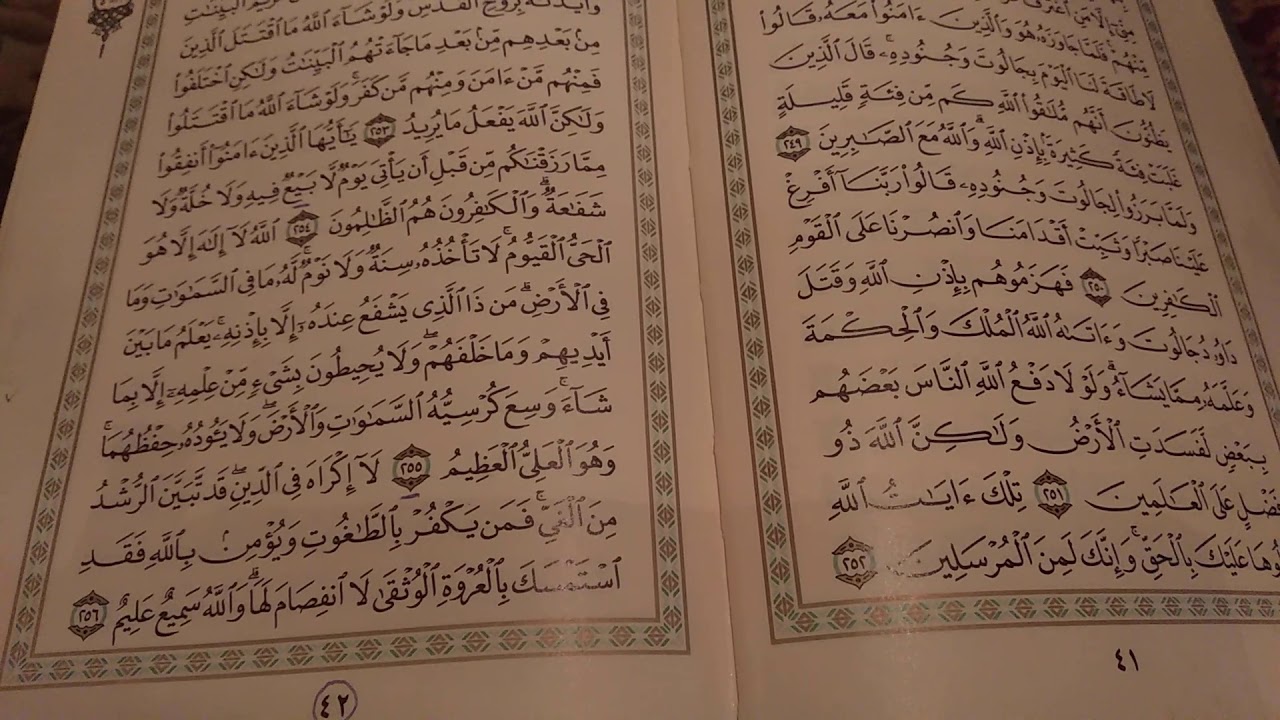 مِنِّىٓ إِلَّا مَنِ ٱغْتَرَفَ
مِّنْهُمْ ۚ فَلَمَّا جَاوَزَهُۥ هُوَ وَٱلَّذِينَ ءَامَنُوا۟ مَعَهُۥ قَالُوا۟
لَا طَاقَةَ لَنَا ٱلْيَوْمَ بِجَالُوتَ وَجُنُودِهِۦ ۚ قَالَ ٱلَّذِينَ
يَظُنُّونَ أَنَّهُم مُّلَٰقُوا۟ ٱللَّهِ كَم مِّن فِئَةٍ قَلِيلَةٍ
غَلَبَتْ فِئَةً كَثِيرَةًۢ بِإِذْنِ ٱللَّهِ ۗ وَٱللَّهُ مَعَ ٱلصَّٰبِرِينَ ٢٤٩
وَلَمَّا بَرَزُوا۟ لِجَالُوتَ وَجُنُودِهِۦ قَالُوا۟ رَبَّنَآ أَفْرِغْ
عَلَيْنَا صَبْرًا وَثَبِّتْ أَقْدَامَنَا وَٱنصُرْنَا عَلَى ٱلْقَوْمِ
ٱلْكَٰفِرِينَ ٢٥٠ فَهَزَمُوهُم بِإِذْنِ ٱللَّهِ وَقَتَلَ
دَاوُۥدُ جَالُوتَ وَءَاتَىٰهُ ٱللَّهُ ٱلْمُلْكَ وَٱلْحِكْمَةَ
وَعَلَّمَهُۥ مِمَّا يَشَآءُ ۗ وَلَوْلَا دَفْعُ ٱللَّهِ ٱلنَّاسَ بَعْضَهُم
بِبَعْضٍ لَّفَسَدَتِ ٱلْأَرْضُ وَلَٰكِنَّ ٱللَّهَ ذُو
فَضْلٍ عَلَى ٱلْعَٰلَمِينَ ٢٥١ تِلْكَ ءَايَٰتُ ٱللَّهِ
نَتْلُوهَا عَلَيْكَ بِٱلْحَقِّ ۚ وَإِنَّكَ لَمِنَ ٱلْمُرْسَلِينَ ٢٥٢
٤١
وَأَيَّدْنَٰهُ بِرُوحِ ٱلْقُدُسِ ۗ وَلَوْ شَآءَ ٱللَّهُ مَا ٱقْتَتَلَ ٱلَّذِينَ
مِنۢ بَعْدِهِم مِّنۢ بَعْدِ مَا جَآءَتْهُمُ ٱلْبَيِّنَٰتُ وَلَٰكِنِ ٱخْتَلَفُوا۟
فَمِنْهُم مَّنْ ءَامَنَ وَمِنْهُم مَّن كَفَرَ ۚ وَلَوْ شَآءَ ٱللَّهُ مَا ٱقْتَتَلُوا۟
وَلَٰكِنَّ ٱللَّهَ يَفْعَلُ مَا يُرِيدُ ٢٥٣ يَٰٓأَيُّهَا ٱلَّذِينَ ءَامَنُوٓا۟ أَنفِقُوا۟
مِمَّا رَزَقْنَٰكُم مِّن قَبْلِ أَن يَأْتِىَ يَوْمٌ لَّا بَيْعٌ فِيهِ وَلَا خُلَّةٌ وَلَا
شَفَٰعَةٌ ۗ وَٱلْكَٰفِرُونَ هُمُ ٱلظَّٰلِمُونَ ٢٥٤ ٱللَّهُ لَآ إِلَٰهَ إِلَّا هُوَ
ٱلْحَىُّ ٱلْقَيُّومُ ۚ لَا تَأْخُذُهُۥ سِنَةٌ وَلَا نَوْمٌ ۚ لَّهُۥ مَا فِى ٱلسَّمَٰوَٰتِ وَمَا
فِى ٱلْأَرْضِ ۗ مَن ذَا ٱلَّذِى يَشْفَعُ عِندَهُۥٓ إِلَّا بِإِذْنِهِۦ ۚ يَعْلَمُ مَا بَيْنَ
أَيْدِيهِمْ وَمَا خَلْفَهُمْ ۖ وَلَا يُحِيطُونَ بِشَىْءٍ مِّنْ عِلْمِهِۦٓ إِلَّا بِمَا
شَآءَ ۚ وَسِعَ كُرْسِيُّهُ ٱلسَّمَٰوَٰتِ وَٱلْأَرْضَ ۖ وَلَا يَـُٔودُهُۥ حِفْظُهُمَا ۚ
وَهُوَ ٱلْعَلِىُّ ٱلْعَظِيمُ ٢٥٥ لَآ إِكْرَاهَ فِى ٱلدِّينِ ۖ قَد تَّبَيَّنَ ٱلرُّشْدُ
مِنَ ٱلْغَىِّ ۚ فَمَن يَكْفُرْ بِٱلطَّٰغُوتِ وَيُؤْمِنۢ بِٱللَّهِ فَقَدِ
ٱسْتَمْسَكَ بِٱلْعُرْوَةِ ٱلْوُثْقَىٰ لَا ٱنفِصَامَ لَهَا ۗ وَٱللَّهُ سَمِيعٌ عَلِيمٌ ٢٥٦
٤٢